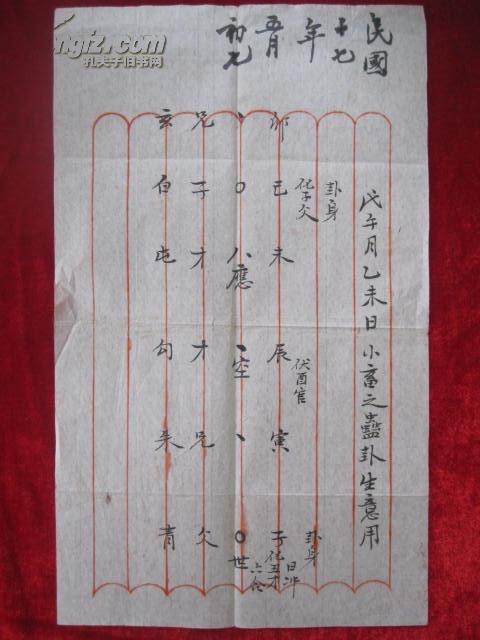 民國
十七
年
五月
初七
戊午月乙未日小畜之蠱卦生意用
卦身 卦身
化子父 伏酉官 日冲
卯 巳 未 辰 寅 子化丑才
六合
、 〇 八應 、空 、 〇世
兄 子 才 才 兄 父
玄 白 虎 勾 朱 青
孔夫子旧书网